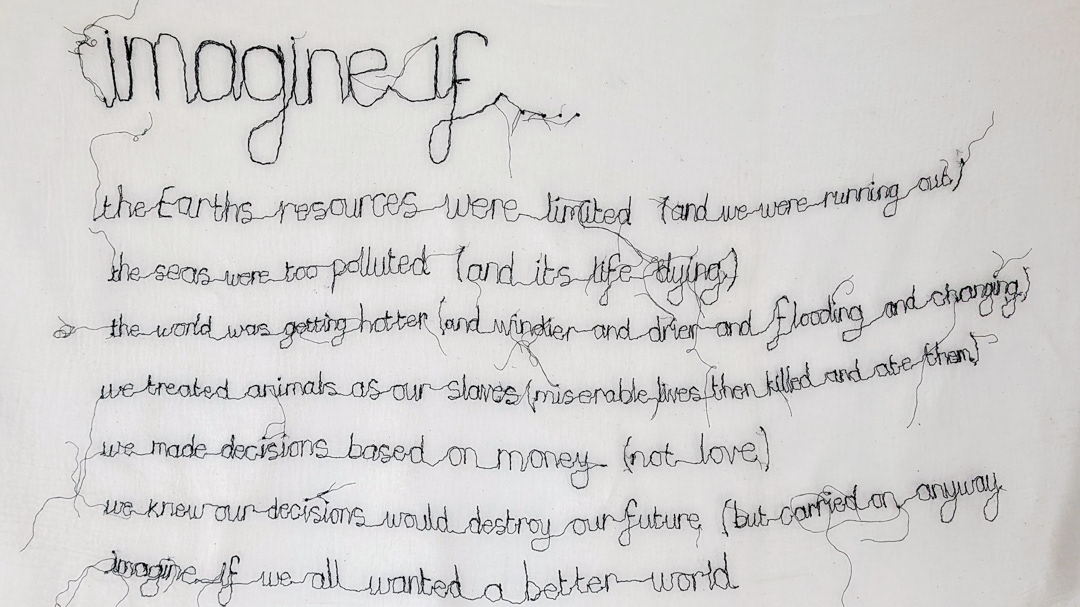 imagine if
the Earths resources were limited (and we were running out)
the seas were too polluted (and its life dying)
the world was getting hotter (and windier and drier and flooding and changing)
we treated animals as our slaves (miserable lives then killed and ate them)
we made decisions based on money (not love)
we knew our decisions would destroy our future (but carried on anyway
imagine if we all wanted a better world